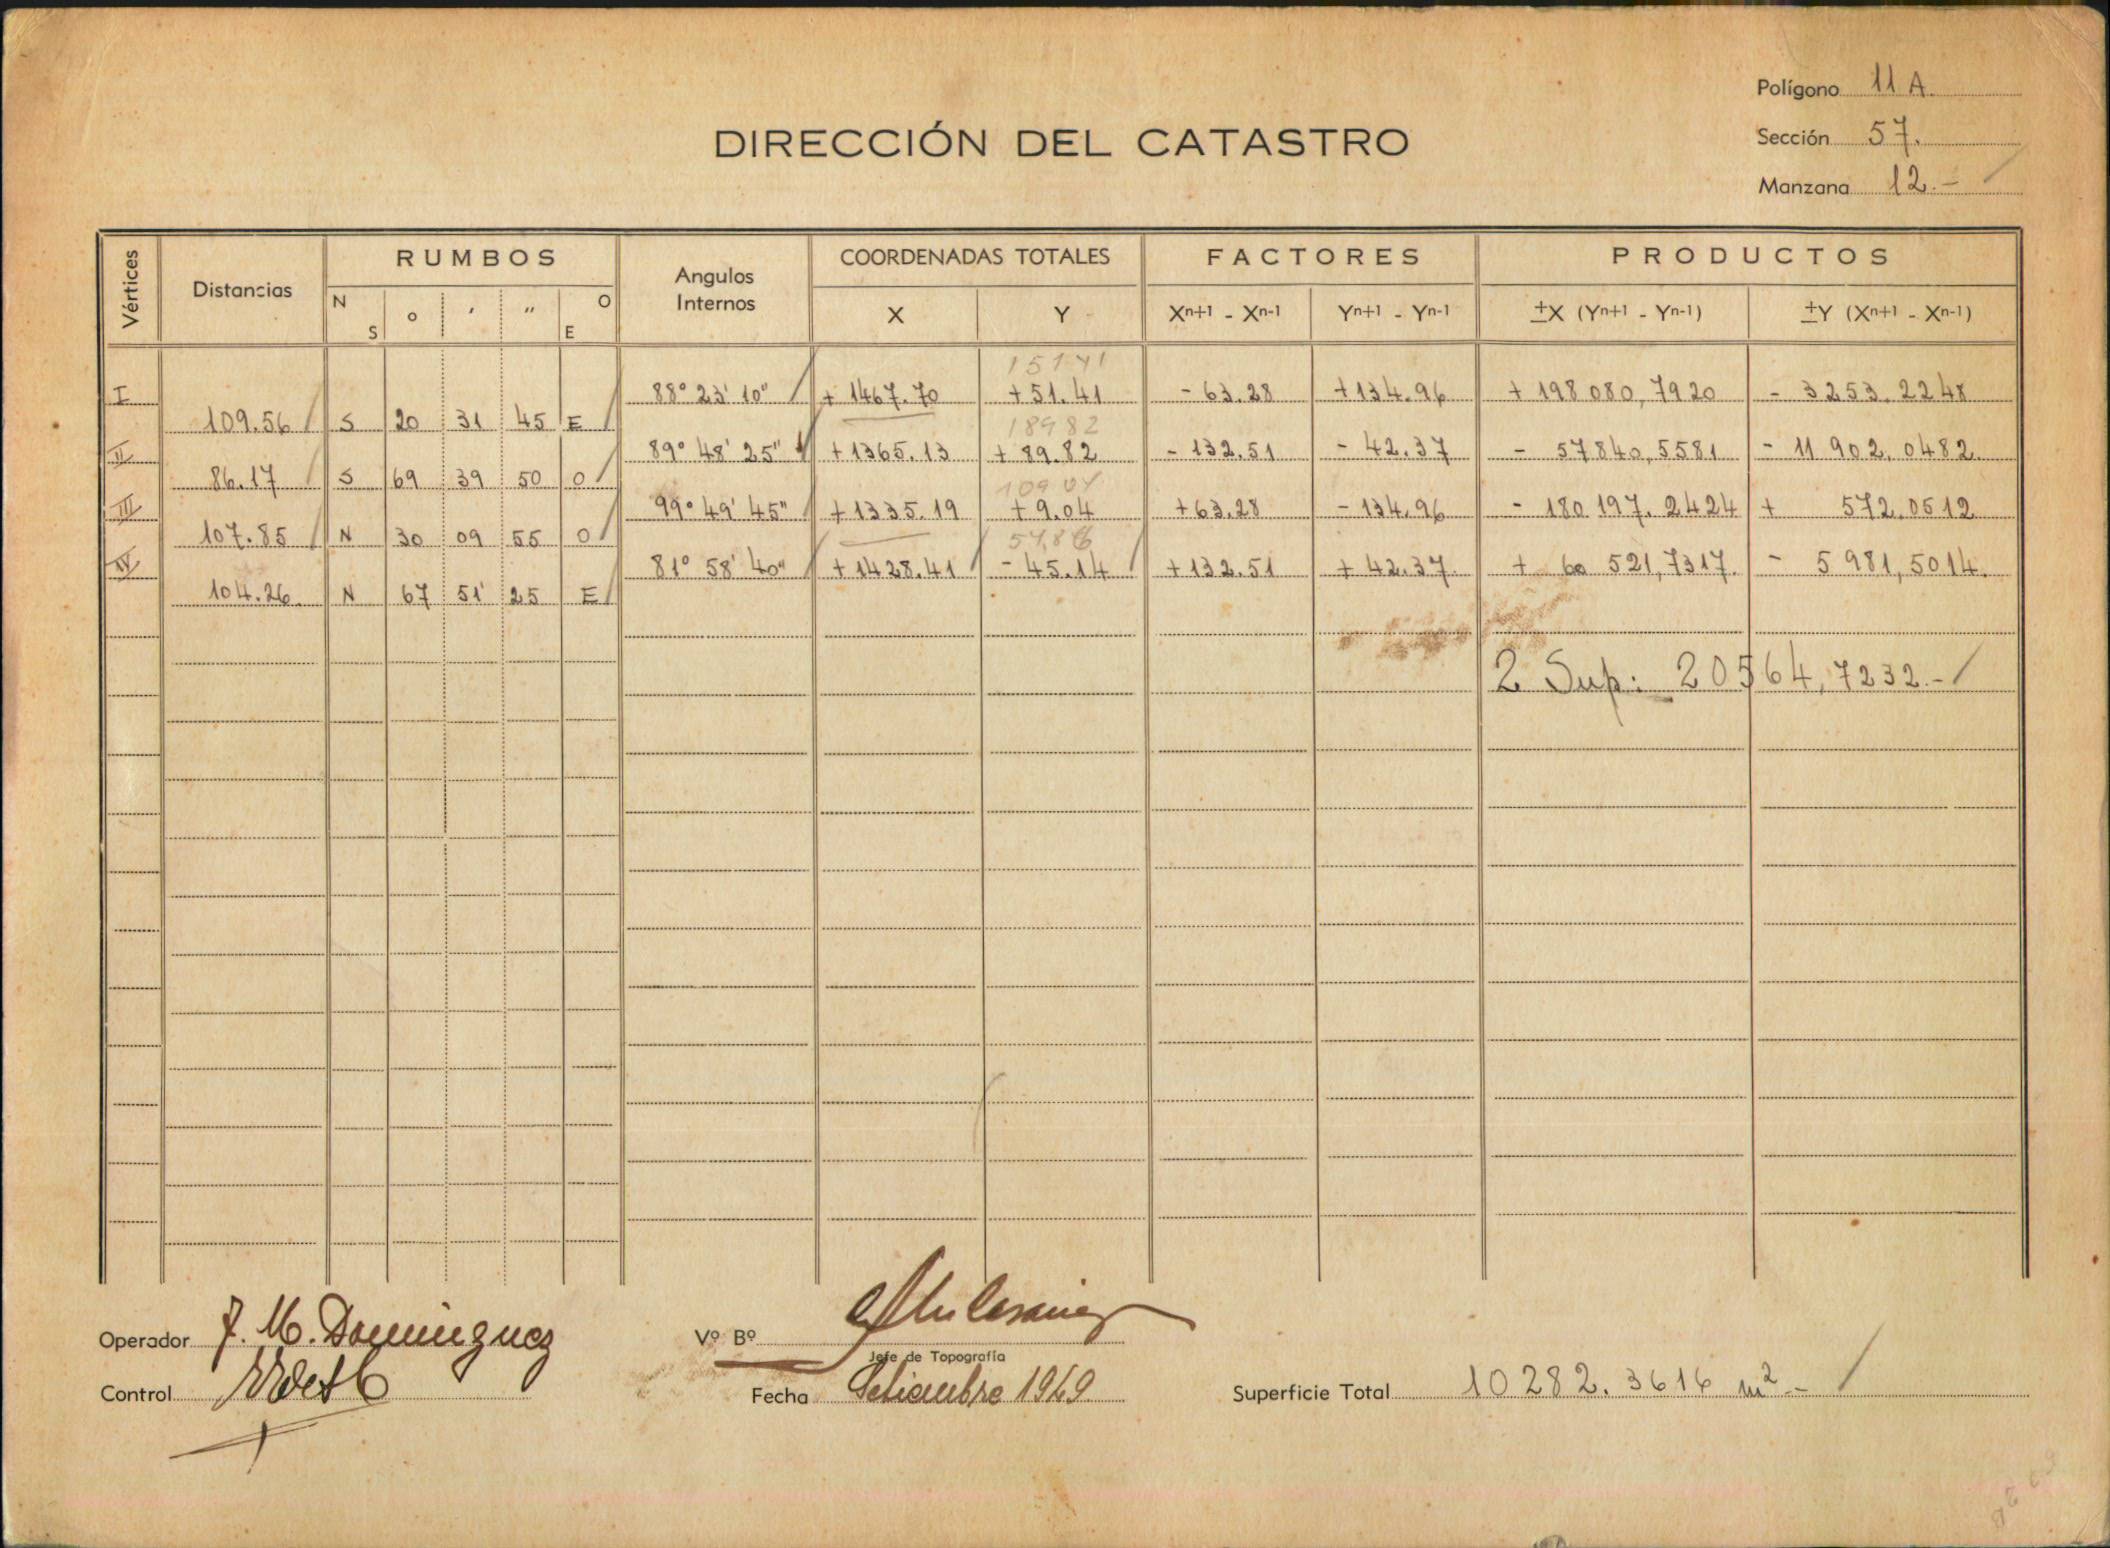 Polígono 11 A.
Sección 57.
Manzana 12.-
DIRECCIÓN DEL CATASTRO
Vértices Distancias RUMBOS Angulos Internos COORDENADAS TOTALES FACTORES PRODUCTOS
N S ° ' " O E X Y Xn+1 - Xn-1 Yn+1 - Yn-1 ±X (Yn+1 - Yn-1) ±Y (Xn+1 - Xn-1)
151 41
I 88° 23' 10" + 1467.70 + 51.41 - 63.28 + 134.96 + 198 080,7920 - 3253.2248
109.56 S 20 31 45 E
189 82
II 89° 48' 25" + 1365.13 + 89.82 - 132.51 - 42.37 - 57840,5581 - 11 902.0482
86.17 S 69 39 50 O
109 04
III 99° 49' 45" + 1335.19 + 9.04 + 63.28 - 134.96 - 180 197.2424 + 572.0512
107.85 N 30 09 55 O
54,86
IV 81° 58' 40" + 1428.41 - 45.14 + 132.51 + 42.37 + 60 521,7317. - 5 981,5014.
104.26 N 67 51' 25 E
2 Sup: 20564,7232.-
Operador J. M. Dominguez
Vº Bº
Jefe de Topografía
Control
Fecha Setiembre 1949
Superficie Total 10282.3616 m².-